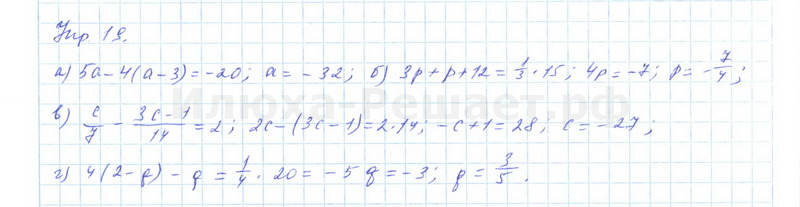 Упр 19.
а) 5a-4(a-3)=-20; a=-32; б) 3p+p+12=1/3·15; 4p=-7; p=-7/4;
в) c/7 - 3c-1/14 = 2; 2c-(3c-1)=2·14; -c+1=28, c=-27;
Илюха-Решает.рф
г) 4(2-q)-q=1/4·20=-5q=-3; q=3/5.